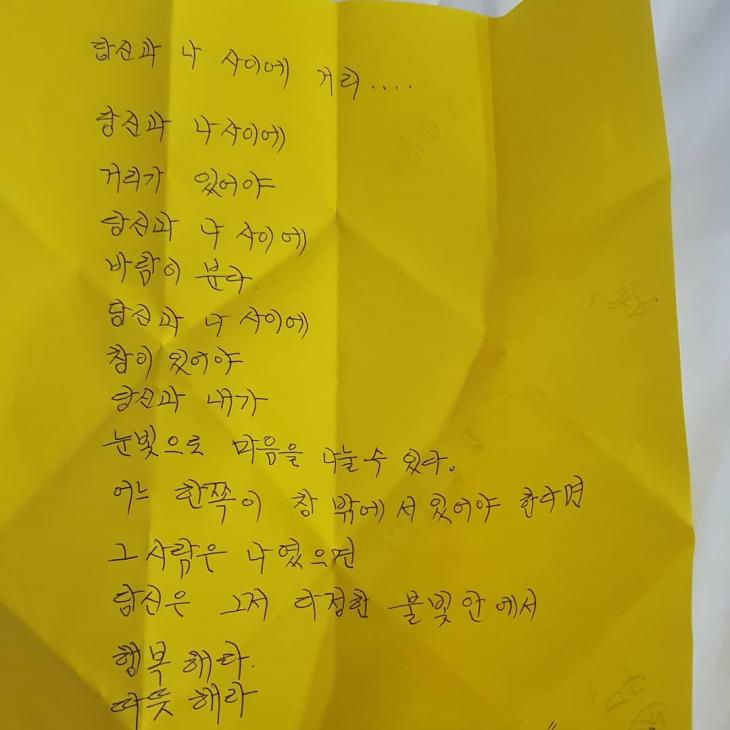 당신과 나 사이에 거리....
당신과 나 사이에
거리가 있어야
당신과 나 사이에
바람이 분다.
당신과 나 사이에
창이 있어야
당신과 내가
눈빛으로 마음을 나눌 수 있다.
어느 한쪽이 창 밖에 서 있어야 한다면
그 사람은 나였으면
당신은 그저 다정한 불빛 안에서
행복해라.
따뜻해라